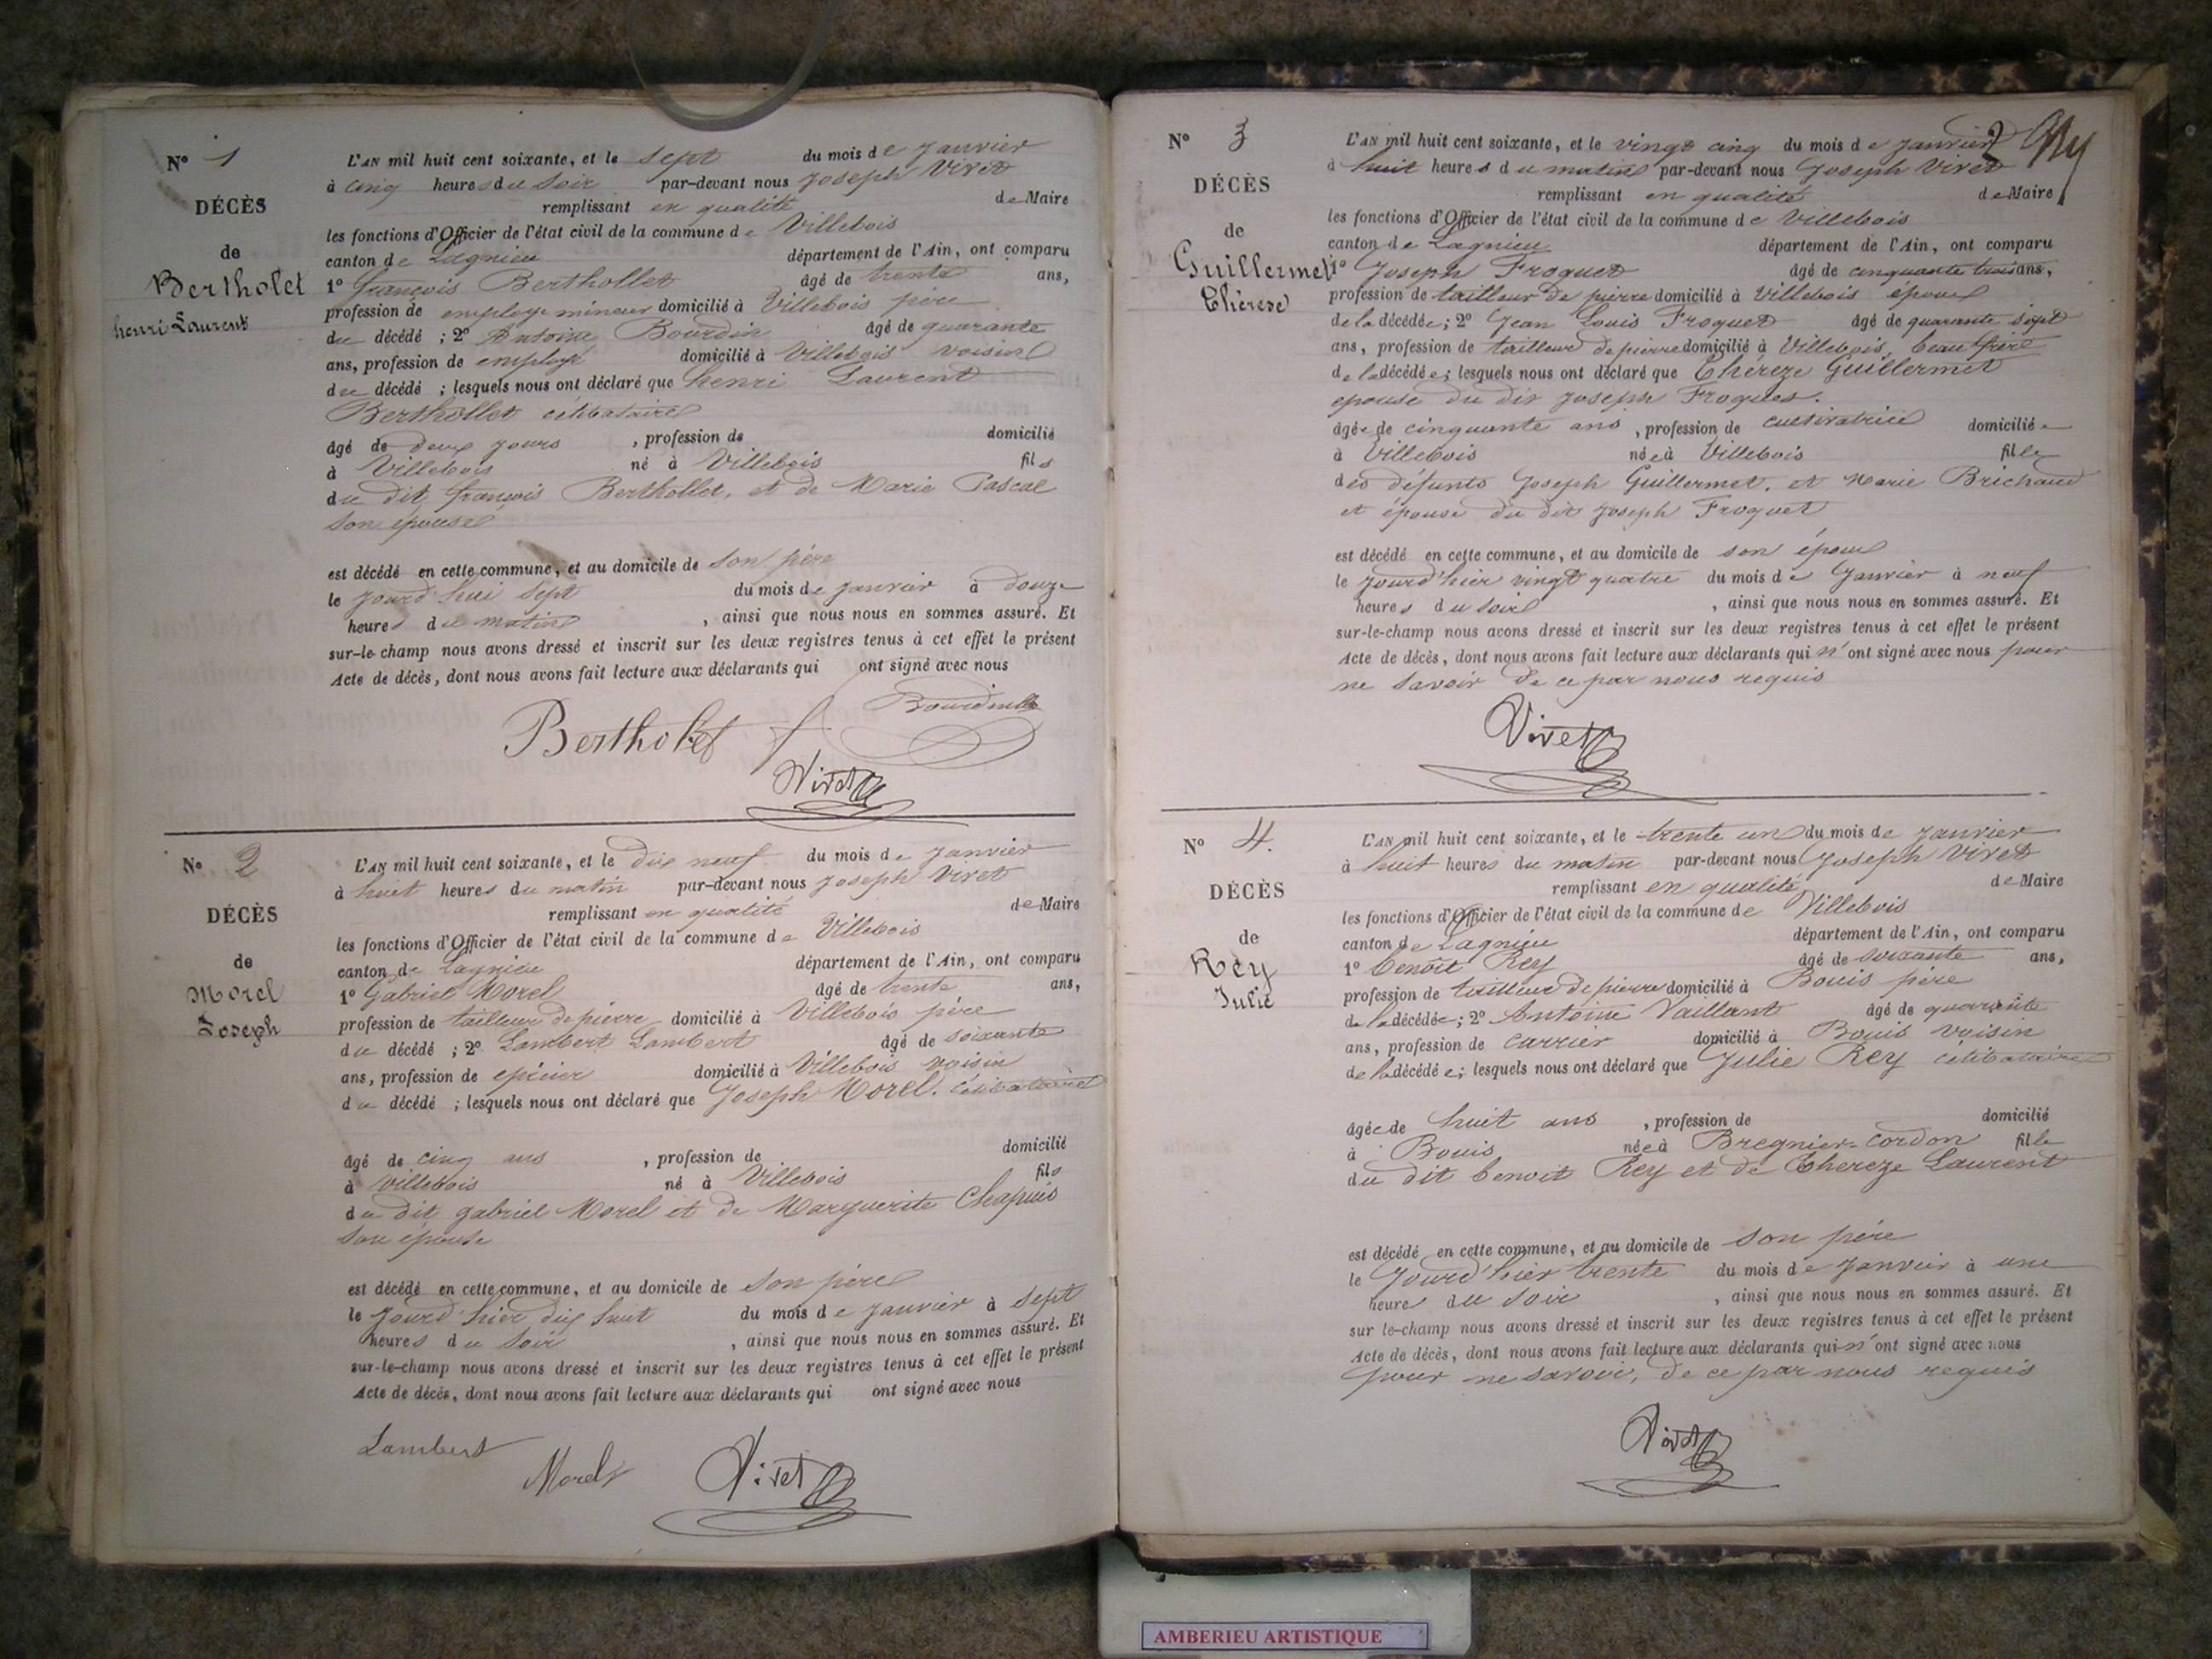 N° 1
DÉCÈS
de
Bertholet
henri Laurent
L'AN mil huit cent soixante, et le sept du mois de janvier
à cinq heures du soir par-devant nous Joseph Vivet
remplissant en qualité de Maire
les fonctions d'Officier de l'état civil de la commune de Villebois
canton de Lagnieu département de l'Ain, ont comparu
1° françois Berthollet âgé de trente ans,
profession de employé mineur domicilié à Villebois père
du décédé ; 2° Antoine Bourdin âgé de quarante
ans, profession de employé domicilié à Villebois voisin
du décédé ; lesquels nous ont déclaré que henri Laurent
Berthollet célibataire
âgé de deux jours , profession de domicilié
à Villebois né à Villebois fils
du dit françois Berthollet, et de Marie Pascal
son épouse
est décédé en cette commune, et au domicile de son père
le jourd'hui sept du mois de janvier à douze
heures du matin , ainsi que nous nous en sommes assuré. Et
sur-le-champ nous avons dressé et inscrit sur les deux registres tenus à cet effet le présent
Acte de décès, dont nous avons fait lecture aux déclarants qui ont signé avec nous
Bourdin
Bertholet
Vivet
N° 2
DÉCÈS
de
Morel
Joseph
L'AN mil huit cent soixante, et le dix neuf du mois de janvier
à huit heures du matin par-devant nous Joseph Vivet
remplissant en qualité de Maire
les fonctions d'Officier de l'état civil de la commune de Villebois
canton de Lagnieu département de l'Ain, ont comparu
1° Gabriel Morel âgé de trente ans,
profession de tailleur de pierre domicilié à Villebois père
du décédé ; 2° Lambert Lambert âgé de soixante
ans, profession de epicier domicilié à Villebois voisin
du décédé ; lesquels nous ont déclaré que Joseph Morel. célibataire
âgé de cinq ans , profession de domicilié
à Villebois né à Villebois fils
du dit gabriel Morel et de Marguerite Chapuis
son épouse
est décédé en cette commune, et au domicile de son père
le jourd'hier dix huit du mois de janvier à sept
heures du soir , ainsi que nous nous en sommes assuré. Et
sur-le-champ nous avons dressé et inscrit sur les deux registres tenus à cet effet le présent
Acte de décès, dont nous avons fait lecture aux déclarants qui ont signé avec nous
Lambert
Morel
Vivet
N° 3
DÉCÈS
de
Guillermet
Thérèse
L'AN mil huit cent soixante, et le vingt cinq du mois de janvier
à huit heures du matin par-devant nous Joseph Vivet
remplissant en qualité de Maire
les fonctions d'Officier de l'état civil de la commune de Villebois
canton de Lagnieu département de l'Ain, ont comparu
1° Joseph Froquet âgé de cinquante trois ans,
profession de tailleur de pierre domicilié à Villebois époux
de la décédée ; 2° Jean Louis Froquet âgé de quarante sept
ans, profession de tailleur de pierre domicilié à Villebois, beau frère
de la décédée ; lesquels nous ont déclaré que Théreze Guillermet
epouse du dit Joseph Froquet.
âgée de cinquante ans , profession de cultivatrice domiciliée
à Villebois née à Villebois fille
des défunts Joseph Guillermet. et Marie Brichaud
et épouse du dit Joseph Froquet
est décédé en cette commune, et au domicile de son époux
le jourd'hier vingt quatre du mois de Janvier à neuf
heures du soir , ainsi que nous nous en sommes assuré. Et
sur-le-champ nous avons dressé et inscrit sur les deux registres tenus à cet effet le présent
Acte de décès, dont nous avons fait lecture aux déclarants qui n'ont signé avec nous pour
ne savoir de ce par nous requis
Vivet
N° 4.
DÉCÈS
de
Rey
Julie
L'AN mil huit cent soixante, et le trente un du mois de janvier
à huit heures du matin par-devant nous Joseph Vivet
remplissant en qualité de Maire
les fonctions d'Officier de l'état civil de la commune de Villebois
canton de Lagnieu département de l'Ain, ont comparu
1° benoît Rey âgé de soixante ans,
profession de tailleur de pierre domicilié à Bouis père
de la décédée ; 2° Antoine Vaillant âgé de quarante
ans, profession de carrier domicilié à Bouis voisin
de la décédée ; lesquels nous ont déclaré que Julie Rey célibataire
âgée de huit ans , profession de domicilié
à Bouis née à Bregnier-Cordon fille
du dit benoit Rey et de Thereze Laurent
est décédé en cette commune, et au domicile de son père
le jourd'hier trente du mois de janvier à une
heure du soir , ainsi que nous nous en sommes assuré. Et
sur le-champ nous avons dressé et inscrit sur les deux registres tenus à cet effet le présent
Acte de décès, dont nous avons fait lecture aux déclarants qui n'ont signé avec nous
pour ne savoir, de ce par nous requis
Vivet
AMBERIEU ARTISTIQUE